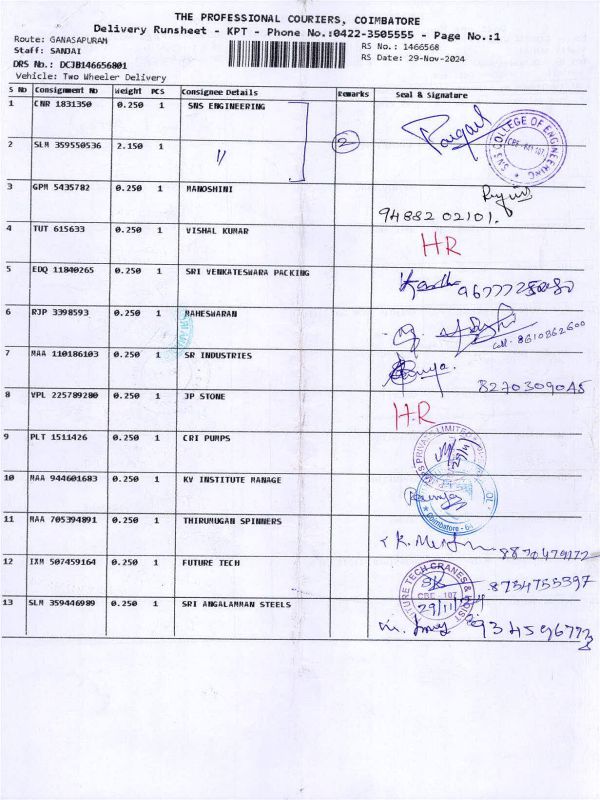 THE PROFESSIONAL COURIERS, COIMBATORE
Delivery Runsheet - KPT - Phone No.:0422-3505555 - Page No.:1
Route: GANASAPURAM
RS No.: 1466568
Staff: SANJAI
RS Date: 29-Nov-2024
DRS No.: DCJB146656801
Vehicle: Two Wheeler Delivery
S No Consignment No Weight PCS Consignee Details Remarks Seal & Signature
1 CNR 1831350 0.250 1 SNS ENGINEERING
2 SLM 359550536 2.150 1 〃 2
S.N.S COLLEGE OF ENGINEERING
CBE - 641 107
3 GPM 5435782 0.250 1 MANOSHINI
94882 02101.
4 TUT 615633 0.250 1 VISHAL KUMAR HR
5 EDQ 11840265 0.250 1 SRI VENKATESWARA PACKING
6 RJP 3398593 0.250 1 MAHESWARAN
cell - 8610862600
7 MAA 110186103 0.250 1 SR INDUSTRIES
8270309045
8 VPL 225789280 0.250 1 JP STONE H.R
9 PLT 1511426 0.250 1 CRI PUMPS
PRIVATE LIMITED
10 MAA 944601683 0.250 1 KV INSTITUTE MANAGE
11 MAA 705394891 0.250 1 THIRUMUGAN SPINNERS
8870479172
12 IXM 507459164 0.250 1 FUTURE TECH SK 8754755397
FUTURE TECH CRANES & HOIST
CBE - 107
13 SLM 359446989 0.250 1 SRI ANGALAMMAN STEELS